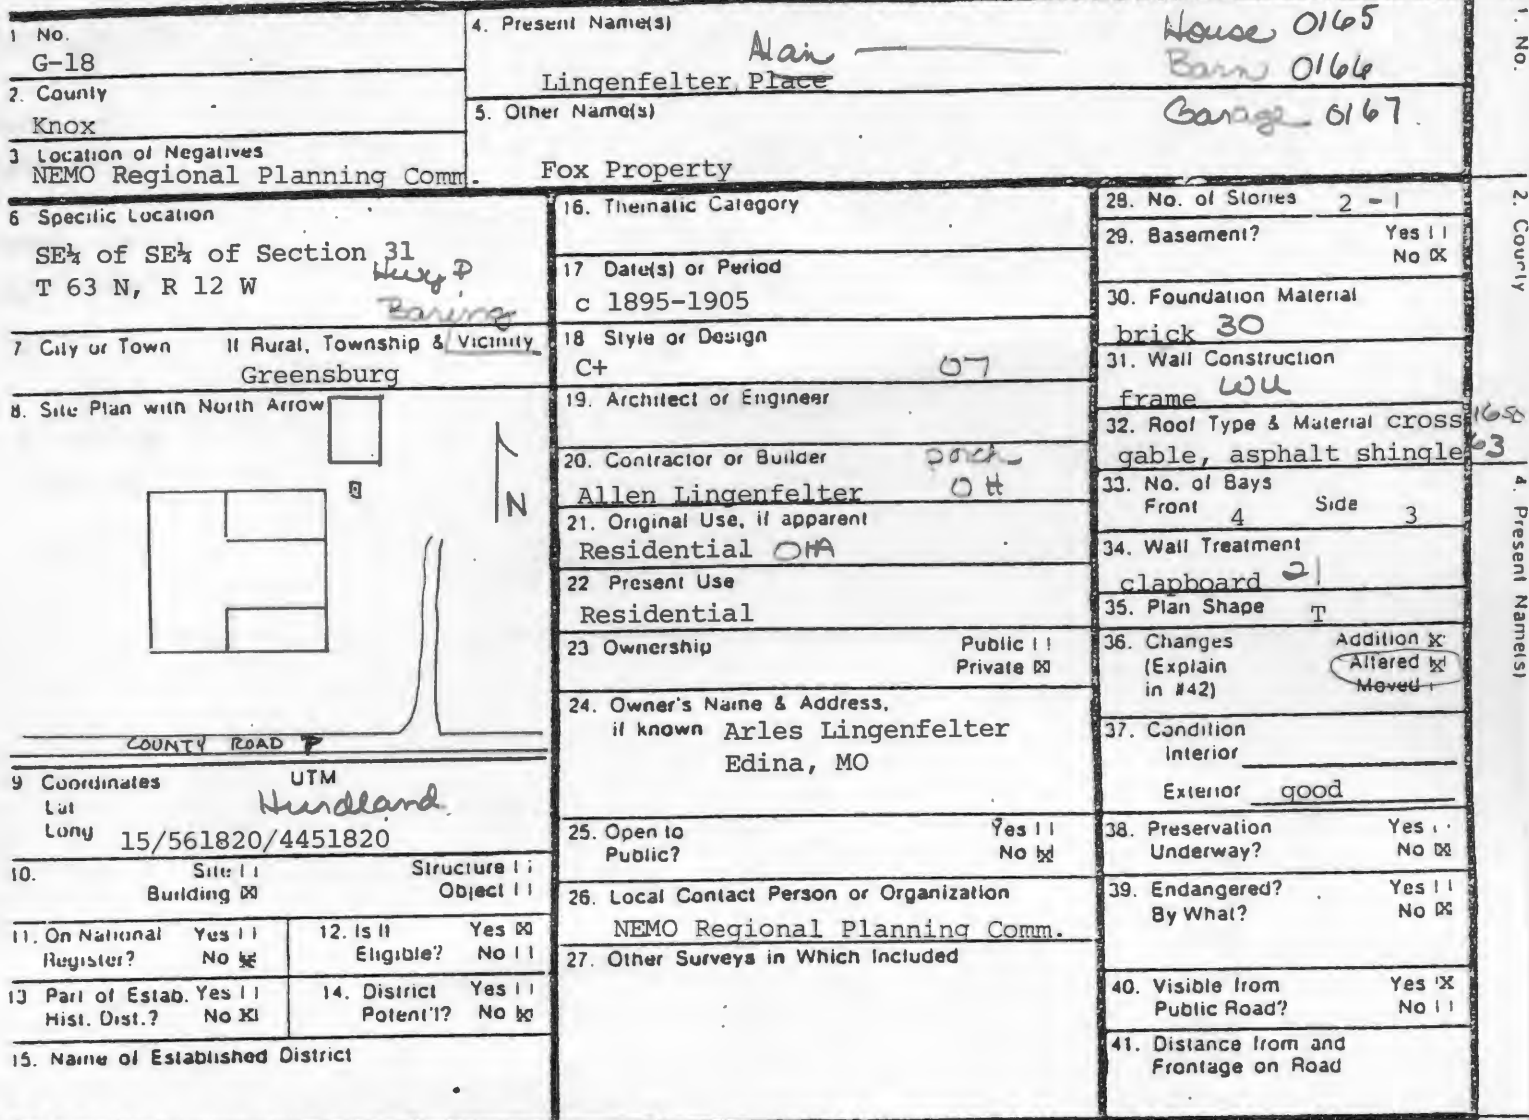 1 No.
G-18
2. County
Knox
3 Location of Negatives
NEMO Regional Planning Comm.
4. Present Name(s)
Alan
Lingenfelter Place
House 0165
Barn 0166
Garage 0167
5. Other Name(s)
Fox Property
6 Specific Location
SE¼ of SE¼ of Section 31
T 63 N, R 12 W
Hwy P
Baring
7 City or Town If Rural, Township & Vicinity
Greensburg
8. Site Plan with North Arrow
N
COUNTY ROAD P
9 Coordinates UTM
Lat
Long
Hurdland
15/561820/4451820
10. Site Structure
Building X Object
11. On National Register? Yes No X
12. Is It Eligible? Yes X No
13 Part of Estab. Hist. Dist.? Yes No X
14. District Potent'l? Yes No X
15. Name of Established District
16. Thematic Category
17 Date(s) or Period
c 1895-1905
18 Style or Design
C+ 07
19. Architect or Engineer
20. Contractor or Builder
porch
Allen Lingenfelter
21. Original Use, if apparent
Residential
22 Present Use
Residential
23 Ownership Public
Private X
24. Owner's Name & Address,
if known Arles Lingenfelter
Edina, MO
25. Open to Yes
Public? No X
26. Local Contact Person or Organization
NEMO Regional Planning Comm.
27. Other Surveys in Which Included
28. No. of Stories 2 - 1
29. Basement? Yes
No X
30. Foundation Material
brick 30
31. Wall Construction
frame WU
32. Roof Type & Material cross
gable, asphalt shingle 63
33. No. of Bays
Front 4 Side 3
34. Wall Treatment
clapboard 21
35. Plan Shape T
36. Changes Addition X
(Explain Altered X
in #42) Moved
37. Condition
Interior
Exterior good
38. Preservation Yes
Underway? No X
39. Endangered? Yes
By What? No X
40. Visible from Yes X
Public Road? No
41. Distance from and
Frontage on Road
1. No.
2. County
4. Present Name(s)